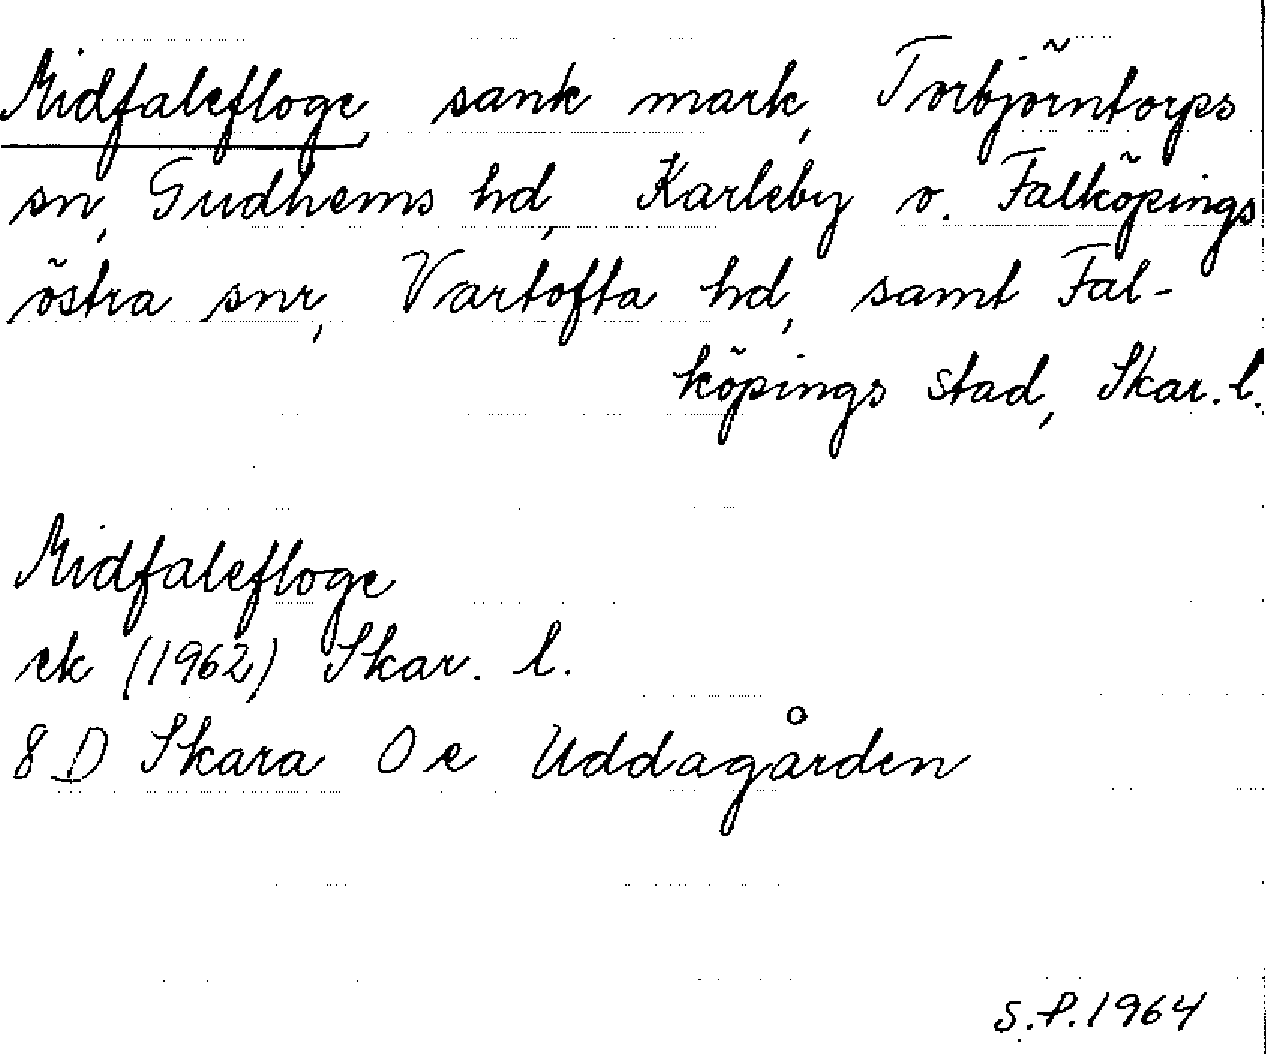 Midfalefloge, sank mark, Torbjörntorps
sn, Gudhems hd, Karleby o. Falköpings
östra snr, Vartofta hd, samt Fal-
köpings stad, Skar. l.
Midfalefloge
ek (1962) Skar. l.
8 D Skara 0 e Uddagården
S.P. 1964